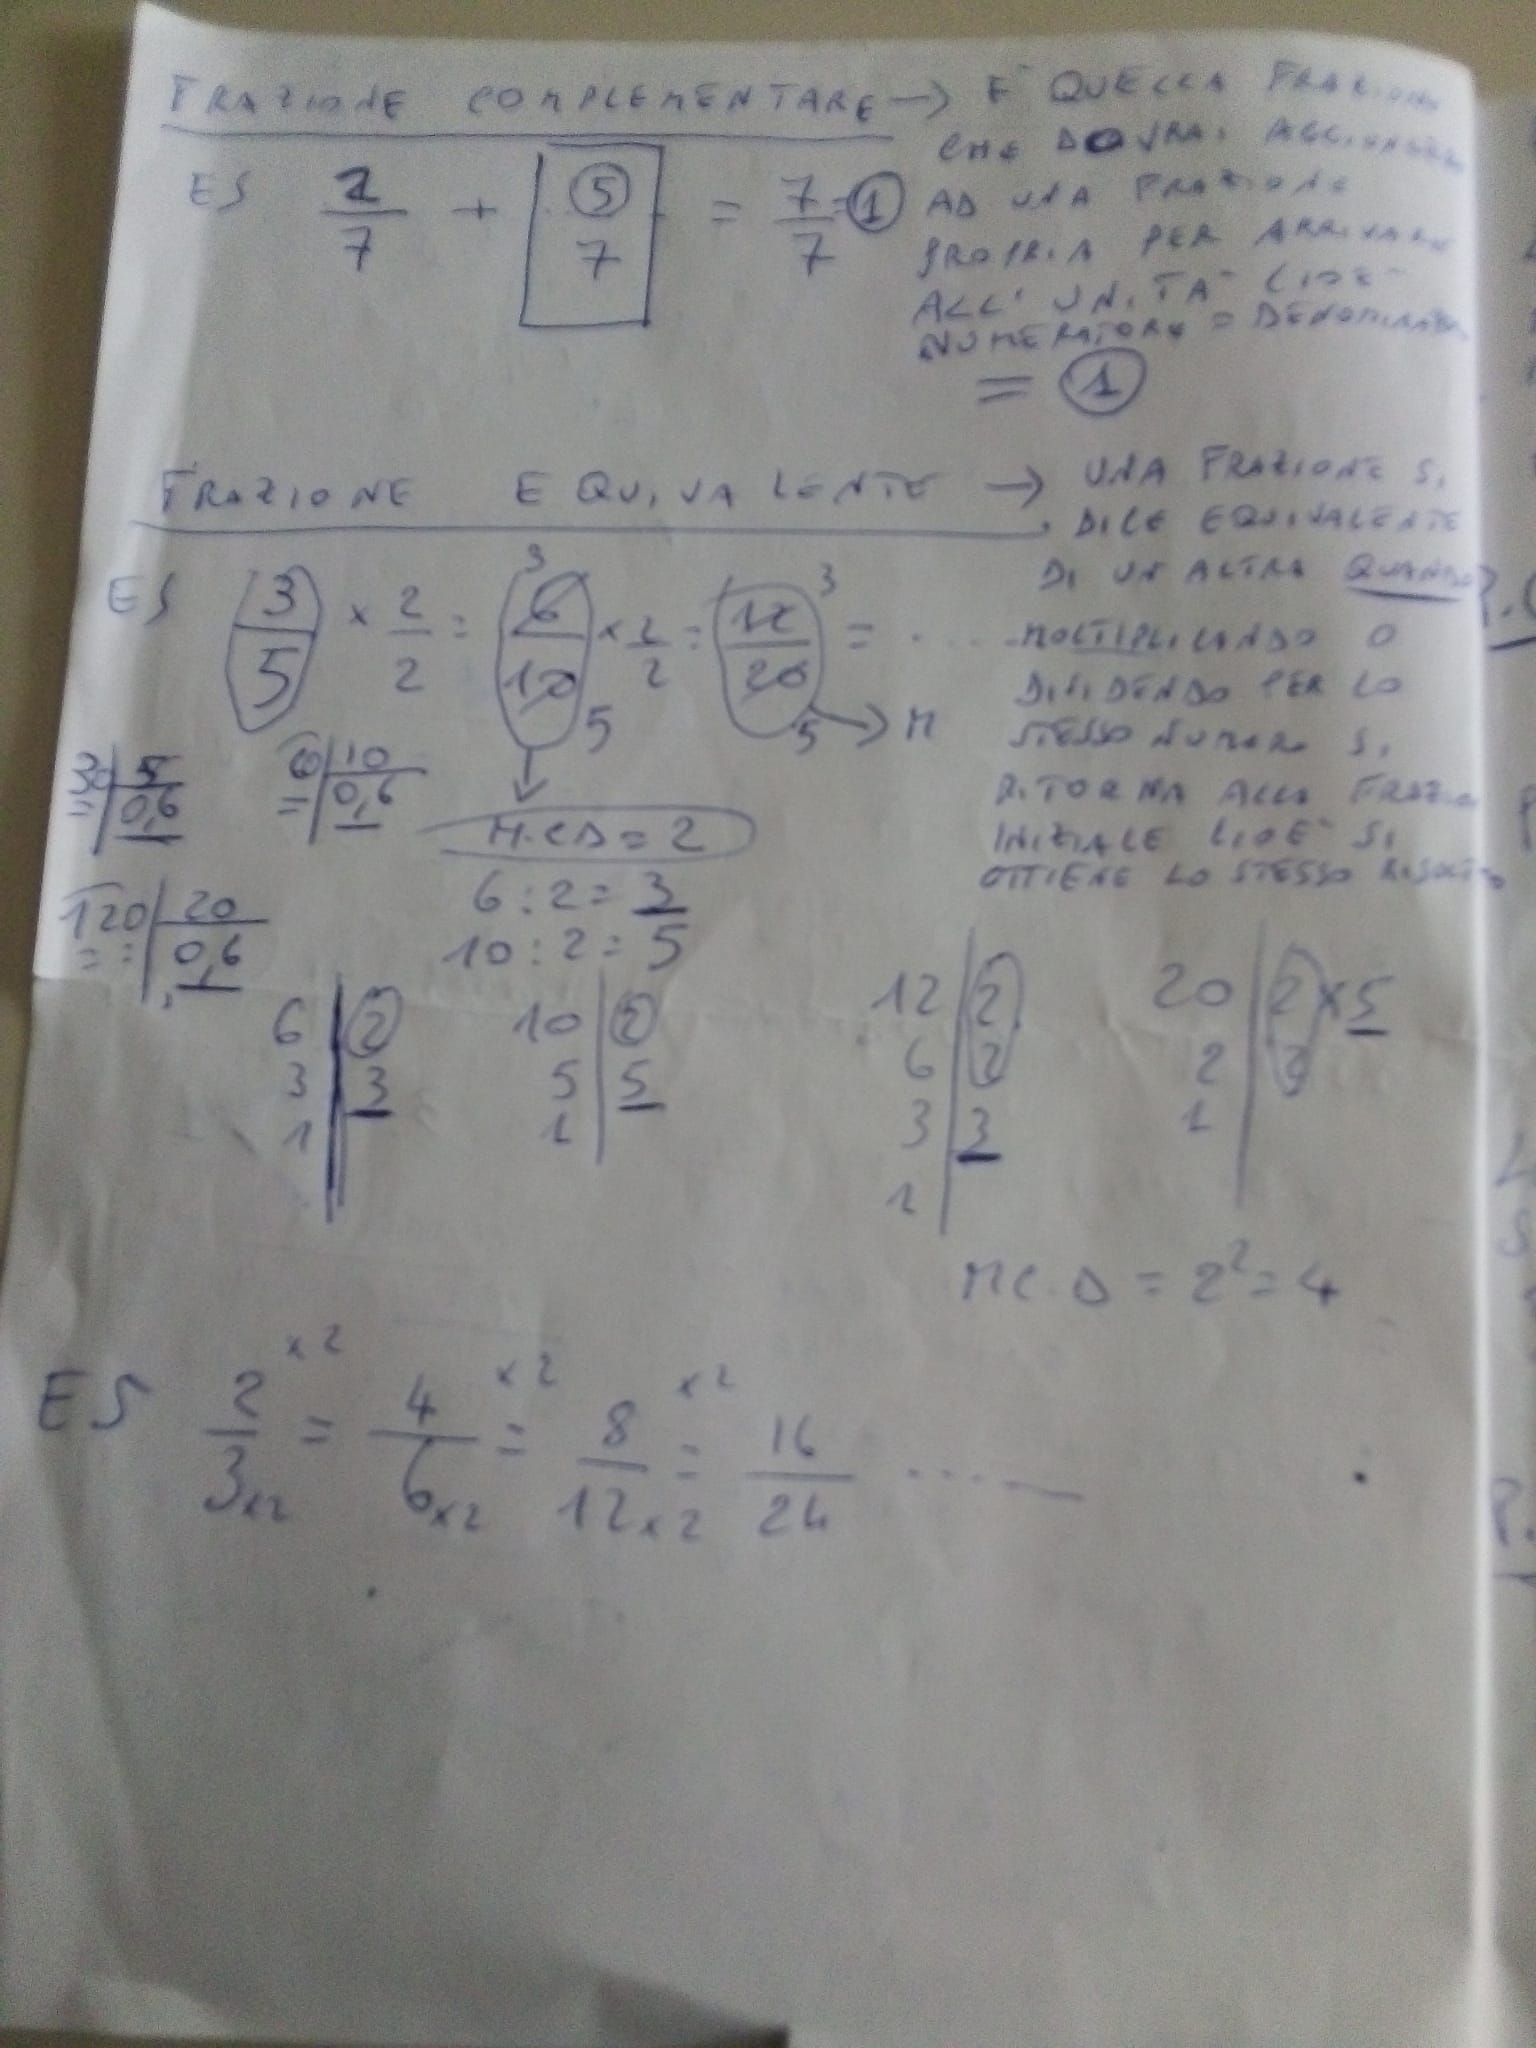 FRAZIONE COMPLEMENTARE → E' QUELLA FRAZIONE
CHE DOVRAI AGGIUNGERE
AD UNA FRAZIONE
PROPRIA PER ARRIVARE
ALL' UNITA' CIOE'
NUMERATORE = DENOMINATORE
= 1
ES 2/7 + 5/7 = 7/7 = 1
FRAZIONE EQUIVALENTE → UNA FRAZIONE SI
DICE EQUIVALENTE
DI UN ALTRA QUANDO
MOLTIPLICANDO O
DIVIDENDO PER LO
STESSO NUMERO SI
RITORNA ALLA FRAZIONE
INIZIALE CIOE' SI
OTTIENE LO STESSO RISULTATO
3 3
ES 3/5 × 2/2 = 6/10 × 2/2 = 12/20 = ....
5 5 → M
30 | 5 60 | 10
= | 0,6 = | 0,6
M.C.D = 2
120 | 20 6 : 2 = 3
= = | 0,6 10 : 2 = 5
6 | 2 10 | 2 12 | 2 20 | 2 × 5
3 | 3 5 | 5 6 | 2 2 | 2
1 1 3 | 3 1
1
M.C.D = 2² = 4
× 2 × 2 × 2
ES 2/3 = 4/6 = 8/12 = 16/24 ....
×2 ×2 ×2